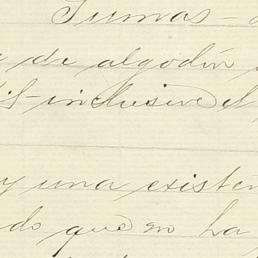 Sumas -
de algodón
inclusive el
y una existen
do que no ha